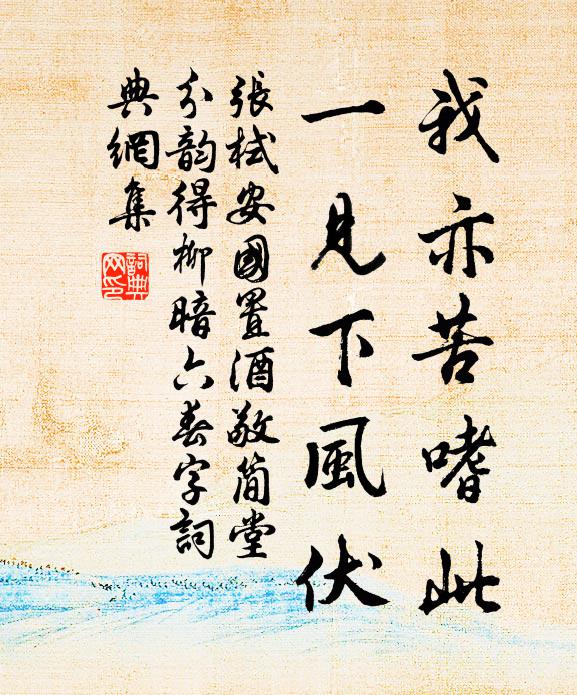 我亦苦嗜此
一見下風伏
張栻安國置酒敬簡堂
分韵得柳暗六春字詞
典網集
詞典網印